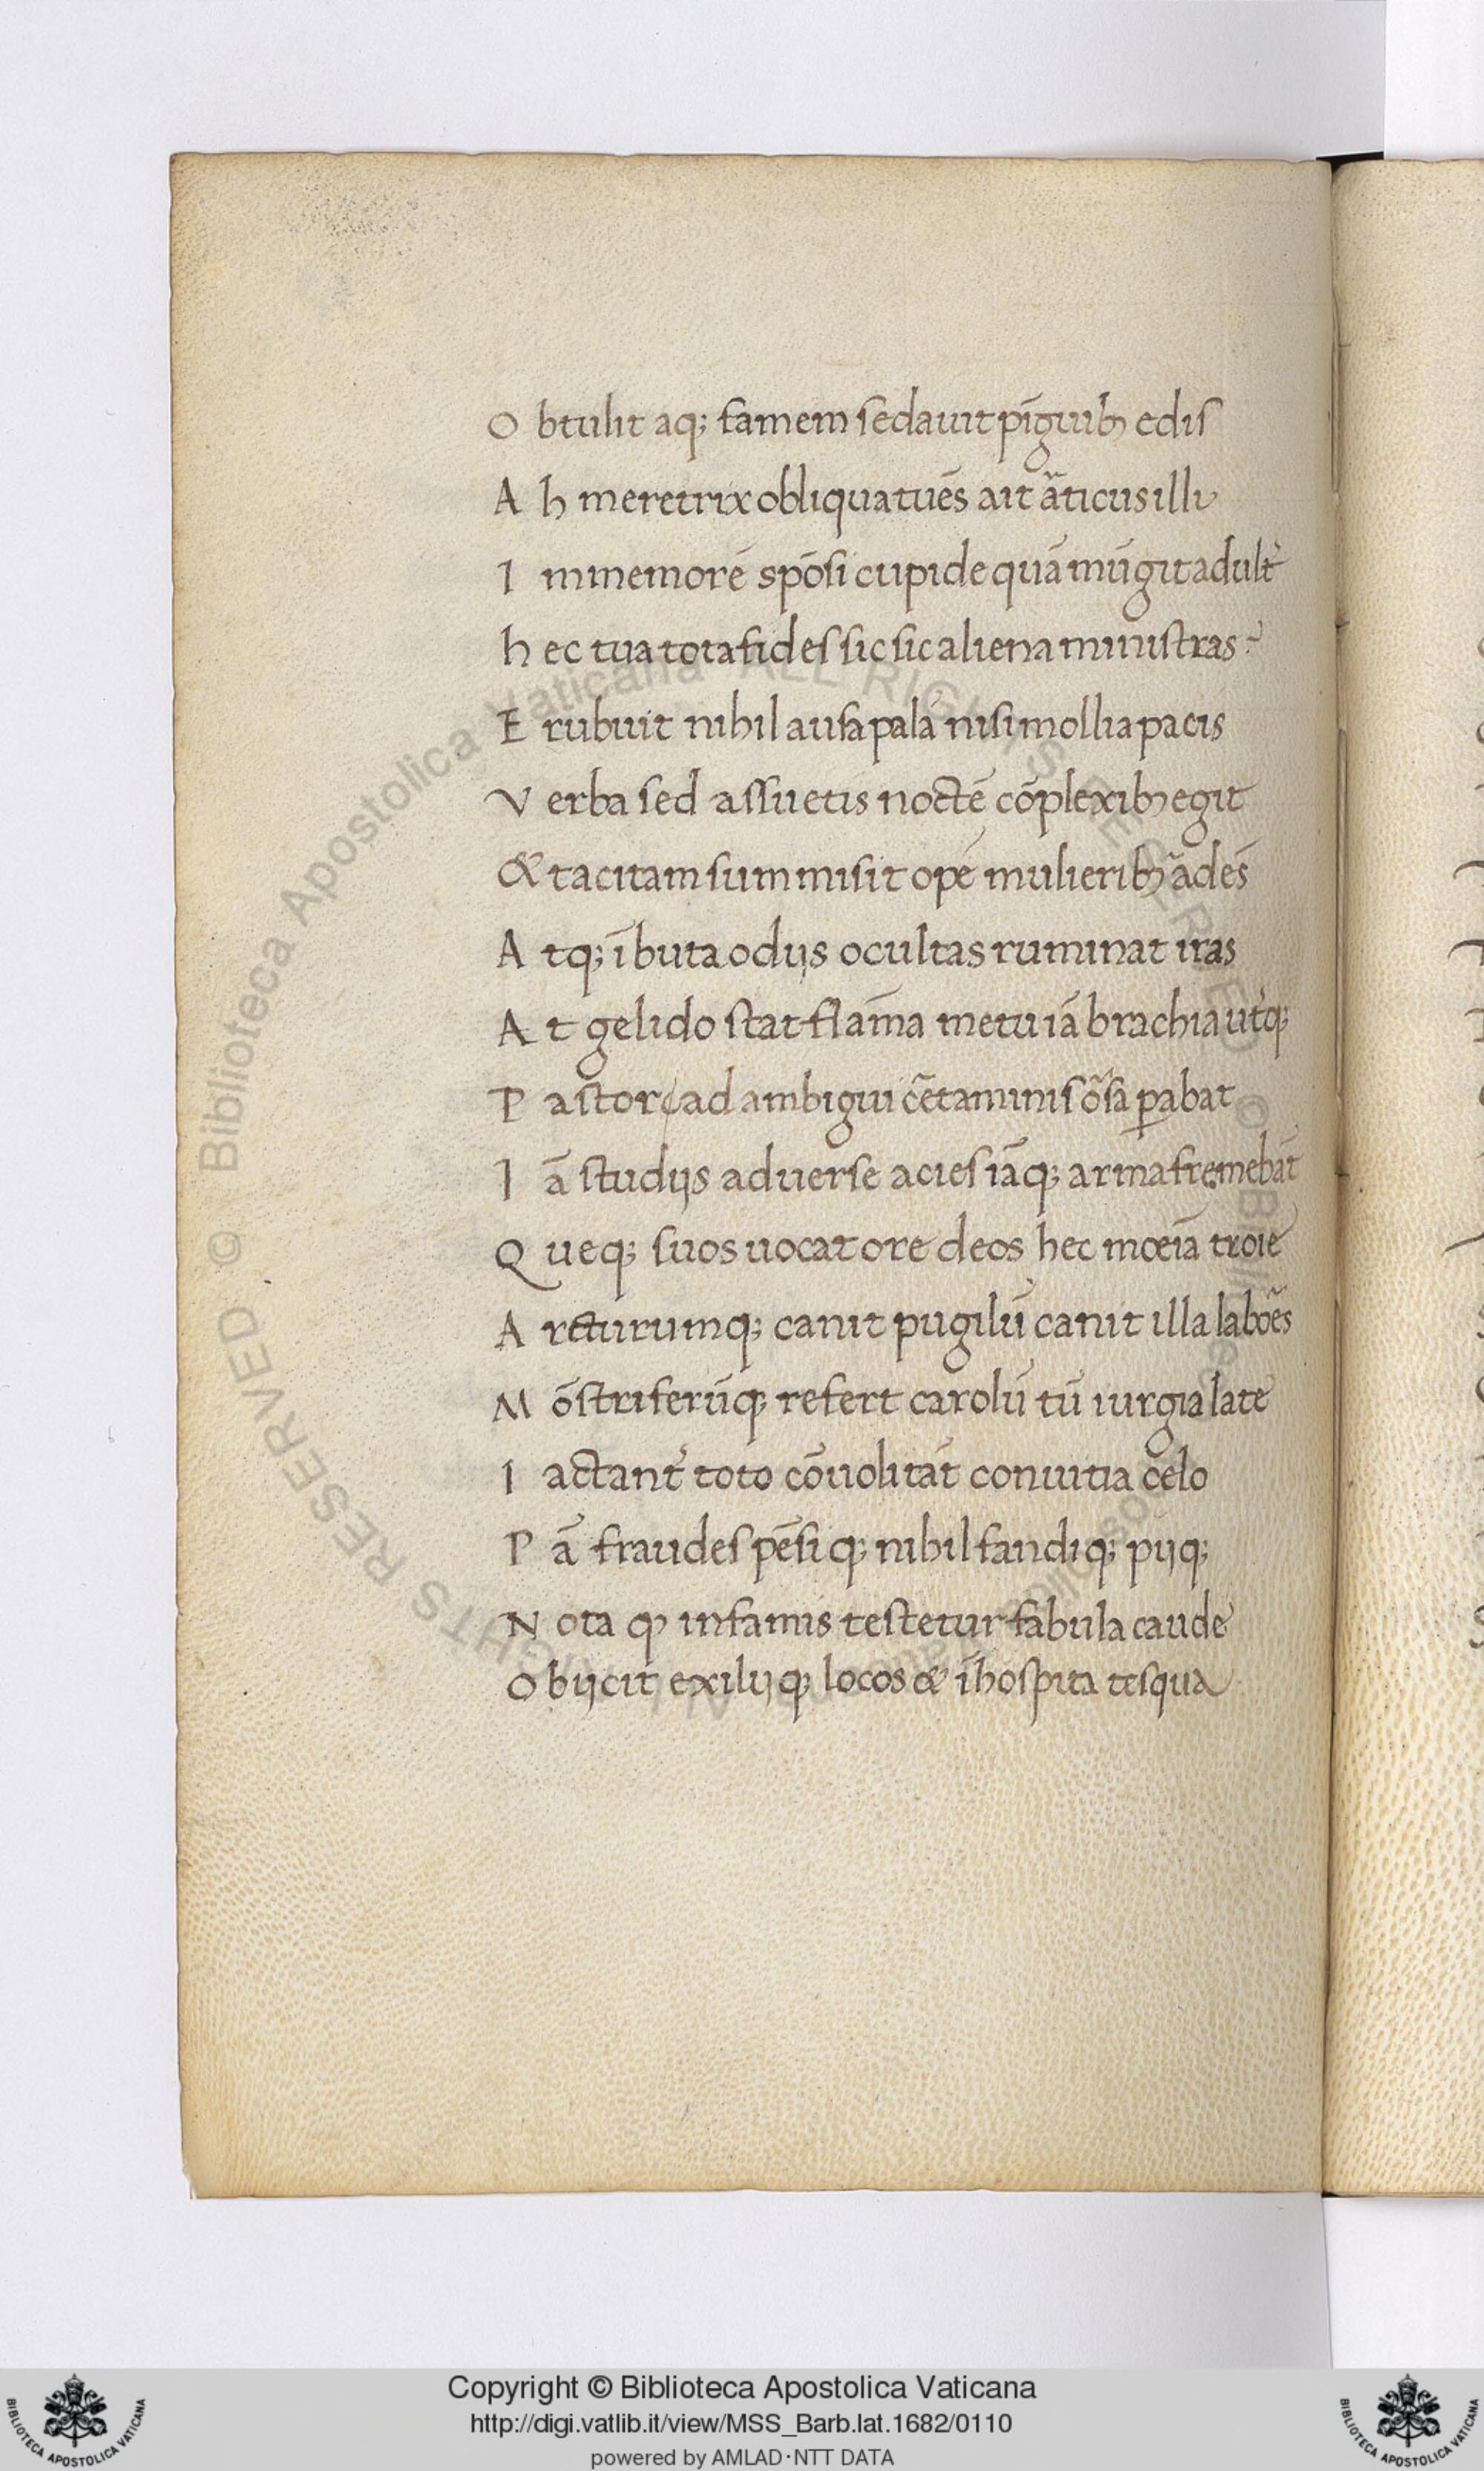 O btulit atq; famem sedauit pīguibꝫ edis
A h meretrix obliqua tuēs ait ãticus illi
I mmemorē spōsi cupide quā mūgit adult̃
h ec tua tota fides sic sic aliena ministras?
E rubuit nihil ausa palā nisi mollia pacis
V erba sed assuetis noctē cōplexibꝫ egit
& tacitam summisit opē mulieribꝫ ãdēs
A tq; ībuta odijs ocultas ruminat iras
A t gelido stat flāma metu iā brachia ut̾q;
P astor ad ambigui c̃taminis õsa ꝑabat
I ā studijs aduerse acies iāq; arma fremebāt
Q ueq; suos uocat ore deos hec mœīa troie
A rcturumq; canit pugilū canit illa labōes
M ōstriferūq; refert carolū tū iurgia late
I actant̾ toto cōuolitāt conuitia celo
P ā fraudes pēsiq; nihil fandiq; pijq;
N ota qꝫ infamis testetur fabula caude
O bijcit exilijq; locos & īhospita tesqua
© Biblioteca Apostolica Vaticana ALL RIGHTS RESERVED
Copyright © Biblioteca Apostolica Vaticana
http://digi.vatlib.it/view/MSS_Barb.lat.1682/0110
powered by AMLAD·NTT DATA
BIBLIOTECA APOSTOLICA VATICANA
BIBLIOTECA APOSTOLICA VATICANA